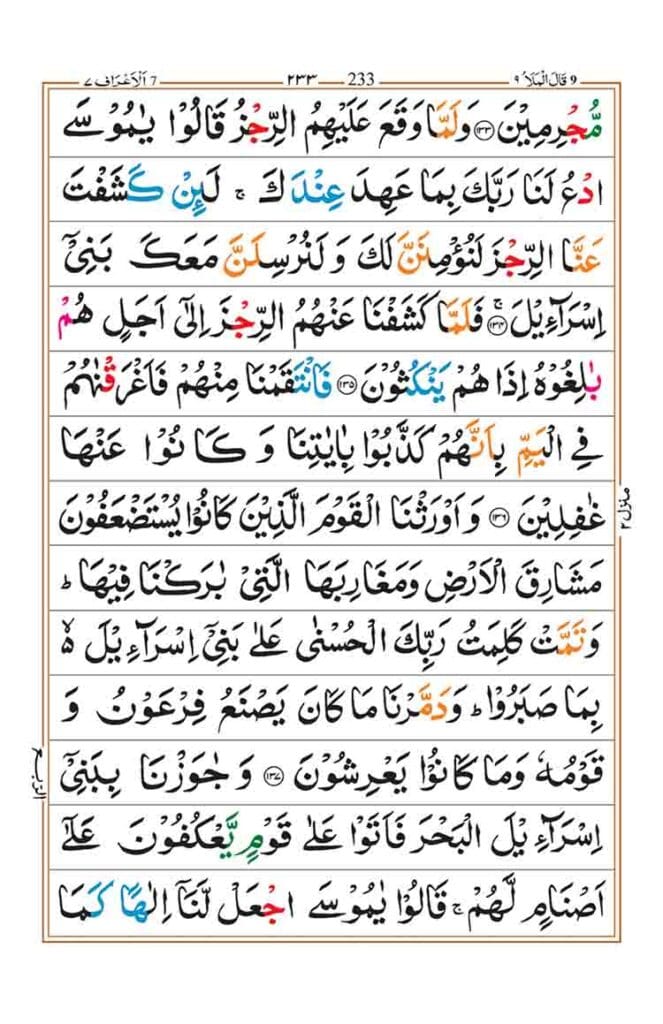 ٩ قَالَ الْمَلَاُ ٩ 233 ٢٣٣ 7 اَلْاَعْرَاف ٧
مُّجْرِمِيْنَ ۝۱۳۳ وَلَمَّا وَقَعَ عَلَيْهِمُ الرِّجْزُ قَالُوْا يٰمُوْسَى
ادْعُ لَنَا رَبَّكَ بِمَا عَهِدَ عِنْدَكَ ۚ لَئِنْ كَشَفْتَ
عَنَّا الرِّجْزَ لَنُؤْمِنَنَّ لَكَ وَلَنُرْسِلَنَّ مَعَكَ بَنِيْۤ
اِسْرَآءِيْلَ ۝۱۳۴ۚ فَلَمَّا كَشَفْنَا عَنْهُمُ الرِّجْزَ اِلٰۤى اَجَلٍ هُمْ
بٰلِغُوْهُ اِذَا هُمْ يَنْكُثُوْنَ ۝۱۳۵ فَانْتَقَمْنَا مِنْهُمْ فَاَغْرَقْنٰهُمْ
فِي الْيَمِّ بِاَنَّهُمْ كَذَّبُوْا بِاٰيٰتِنَا وَكَانُوْا عَنْهَا
غٰفِلِيْنَ ۝۱۳۶ وَاَوْرَثْنَا الْقَوْمَ الَّذِيْنَ كَانُوْا يُسْتَضْعَفُوْنَ
مَشَارِقَ الْاَرْضِ وَمَغَارِبَهَا الَّتِيْ بٰرَكْنَا فِيْهَا ؕ
وَتَمَّتْ كَلِمَتُ رَبِّكَ الْحُسْنٰى عَلٰى بَنِيْۤ اِسْرَآءِيْلَ ۙ۬
بِمَا صَبَرُوْا ؕ وَدَمَّرْنَا مَا كَانَ يَصْنَعُ فِرْعَوْنُ وَ
قَوْمُهٗ وَمَا كَانُوْا يَعْرِشُوْنَ ۝۱۳۷ وَجٰوَزْنَا بِبَنِيْۤ
اِسْرَآءِيْلَ الْبَحْرَ فَاَتَوْا عَلٰى قَوْمٍ يَّعْكُفُوْنَ عَلٰۤى
اَصْنَامٍ لَّهُمْ ۚ قَالُوْا يٰمُوْسَى اجْعَلْ لَّنَاۤ اِلٰهًا كَمَا
منزل ٢
الربع